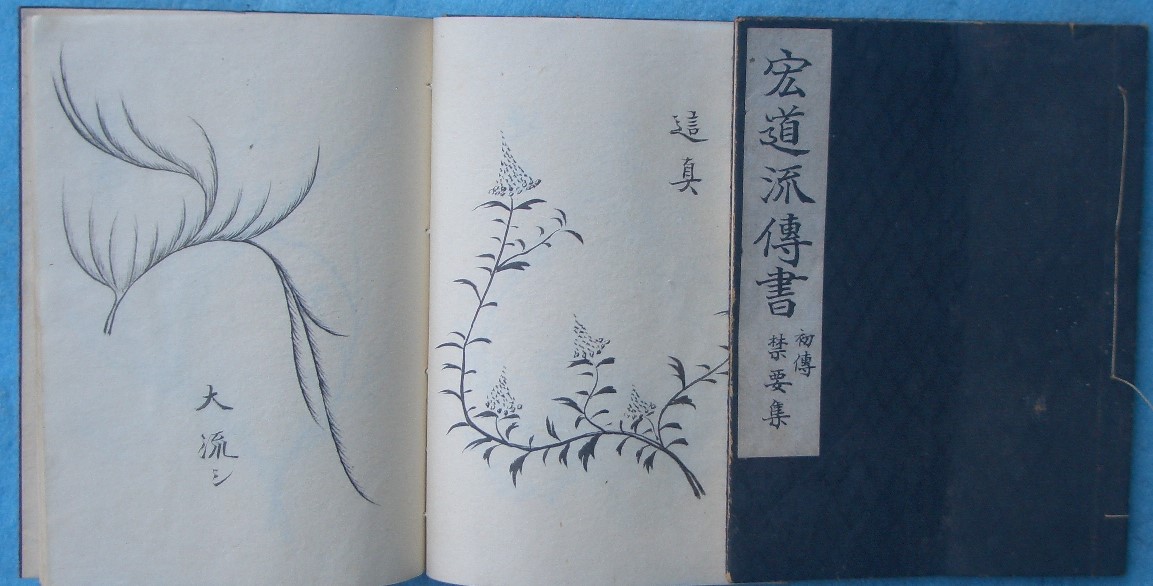 宏道流傳書
初傳
禁要集
這真
大流シ